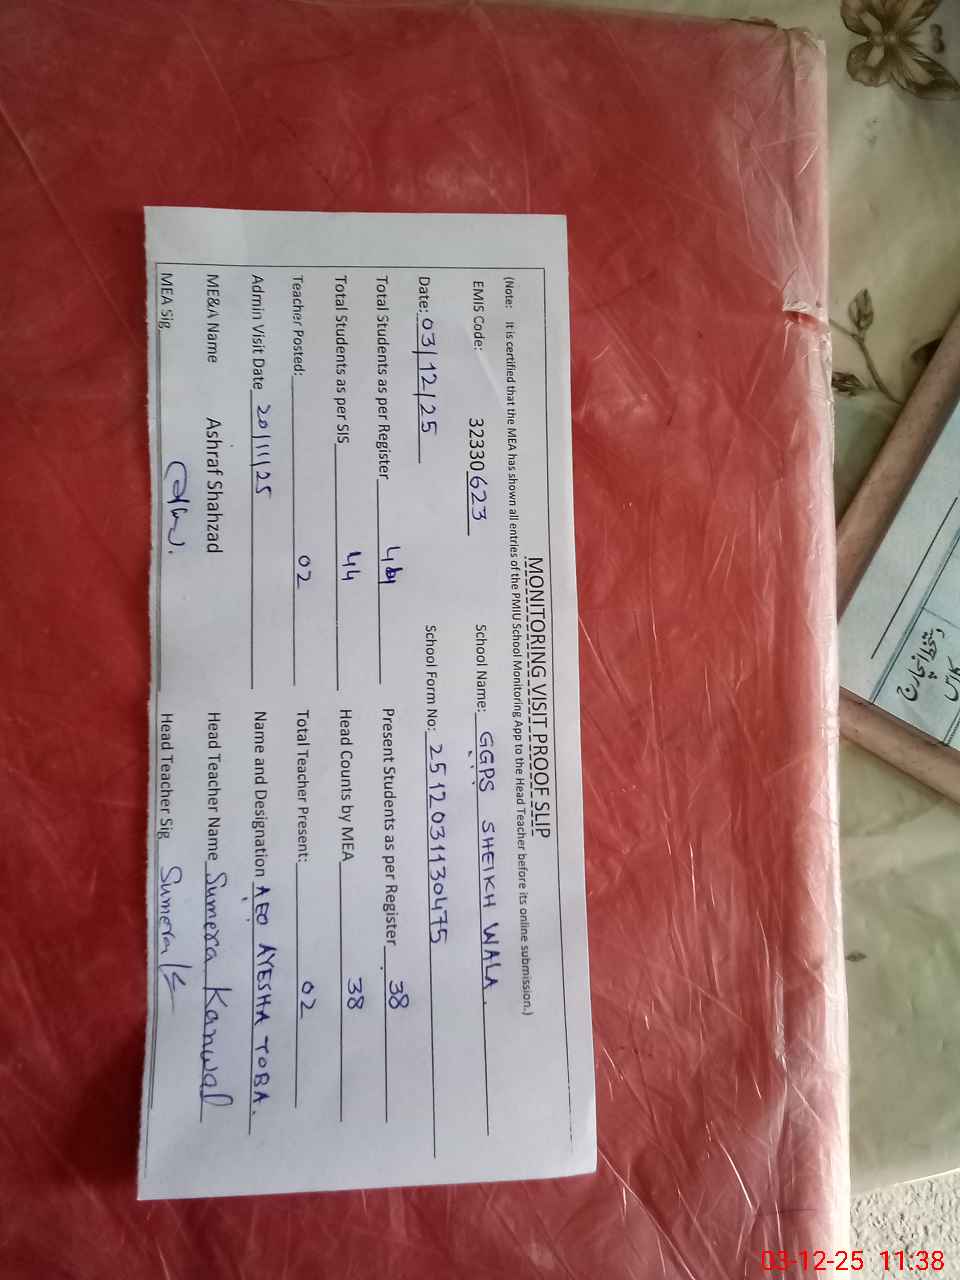 MONITORING VISIT PROOF SLIP
(Note: It is certified that the MEA has shown all entries of the PMIU School Monitoring App to the Head Teacher before its online submission.)
EMIS Code: 32330623 School Name: GGPS SHEIKH WALA.
Date: 03/12/25 School Form No: 2512031130475
Total Students as per Register Present Students as per Register 38
Total Students as per SIS 44 Head Counts by MEA 38
Teacher Posted: 02 Total Teacher Present: 02
Admin Visit Date 20/11/25 Name and Designation AEO AYESHA TOBA.
ME&A Name Ashraf Shahzad Head Teacher Name Sumera Kanwal
MEA Sig Head Teacher Sig Sumera K
03-12-25 11:38